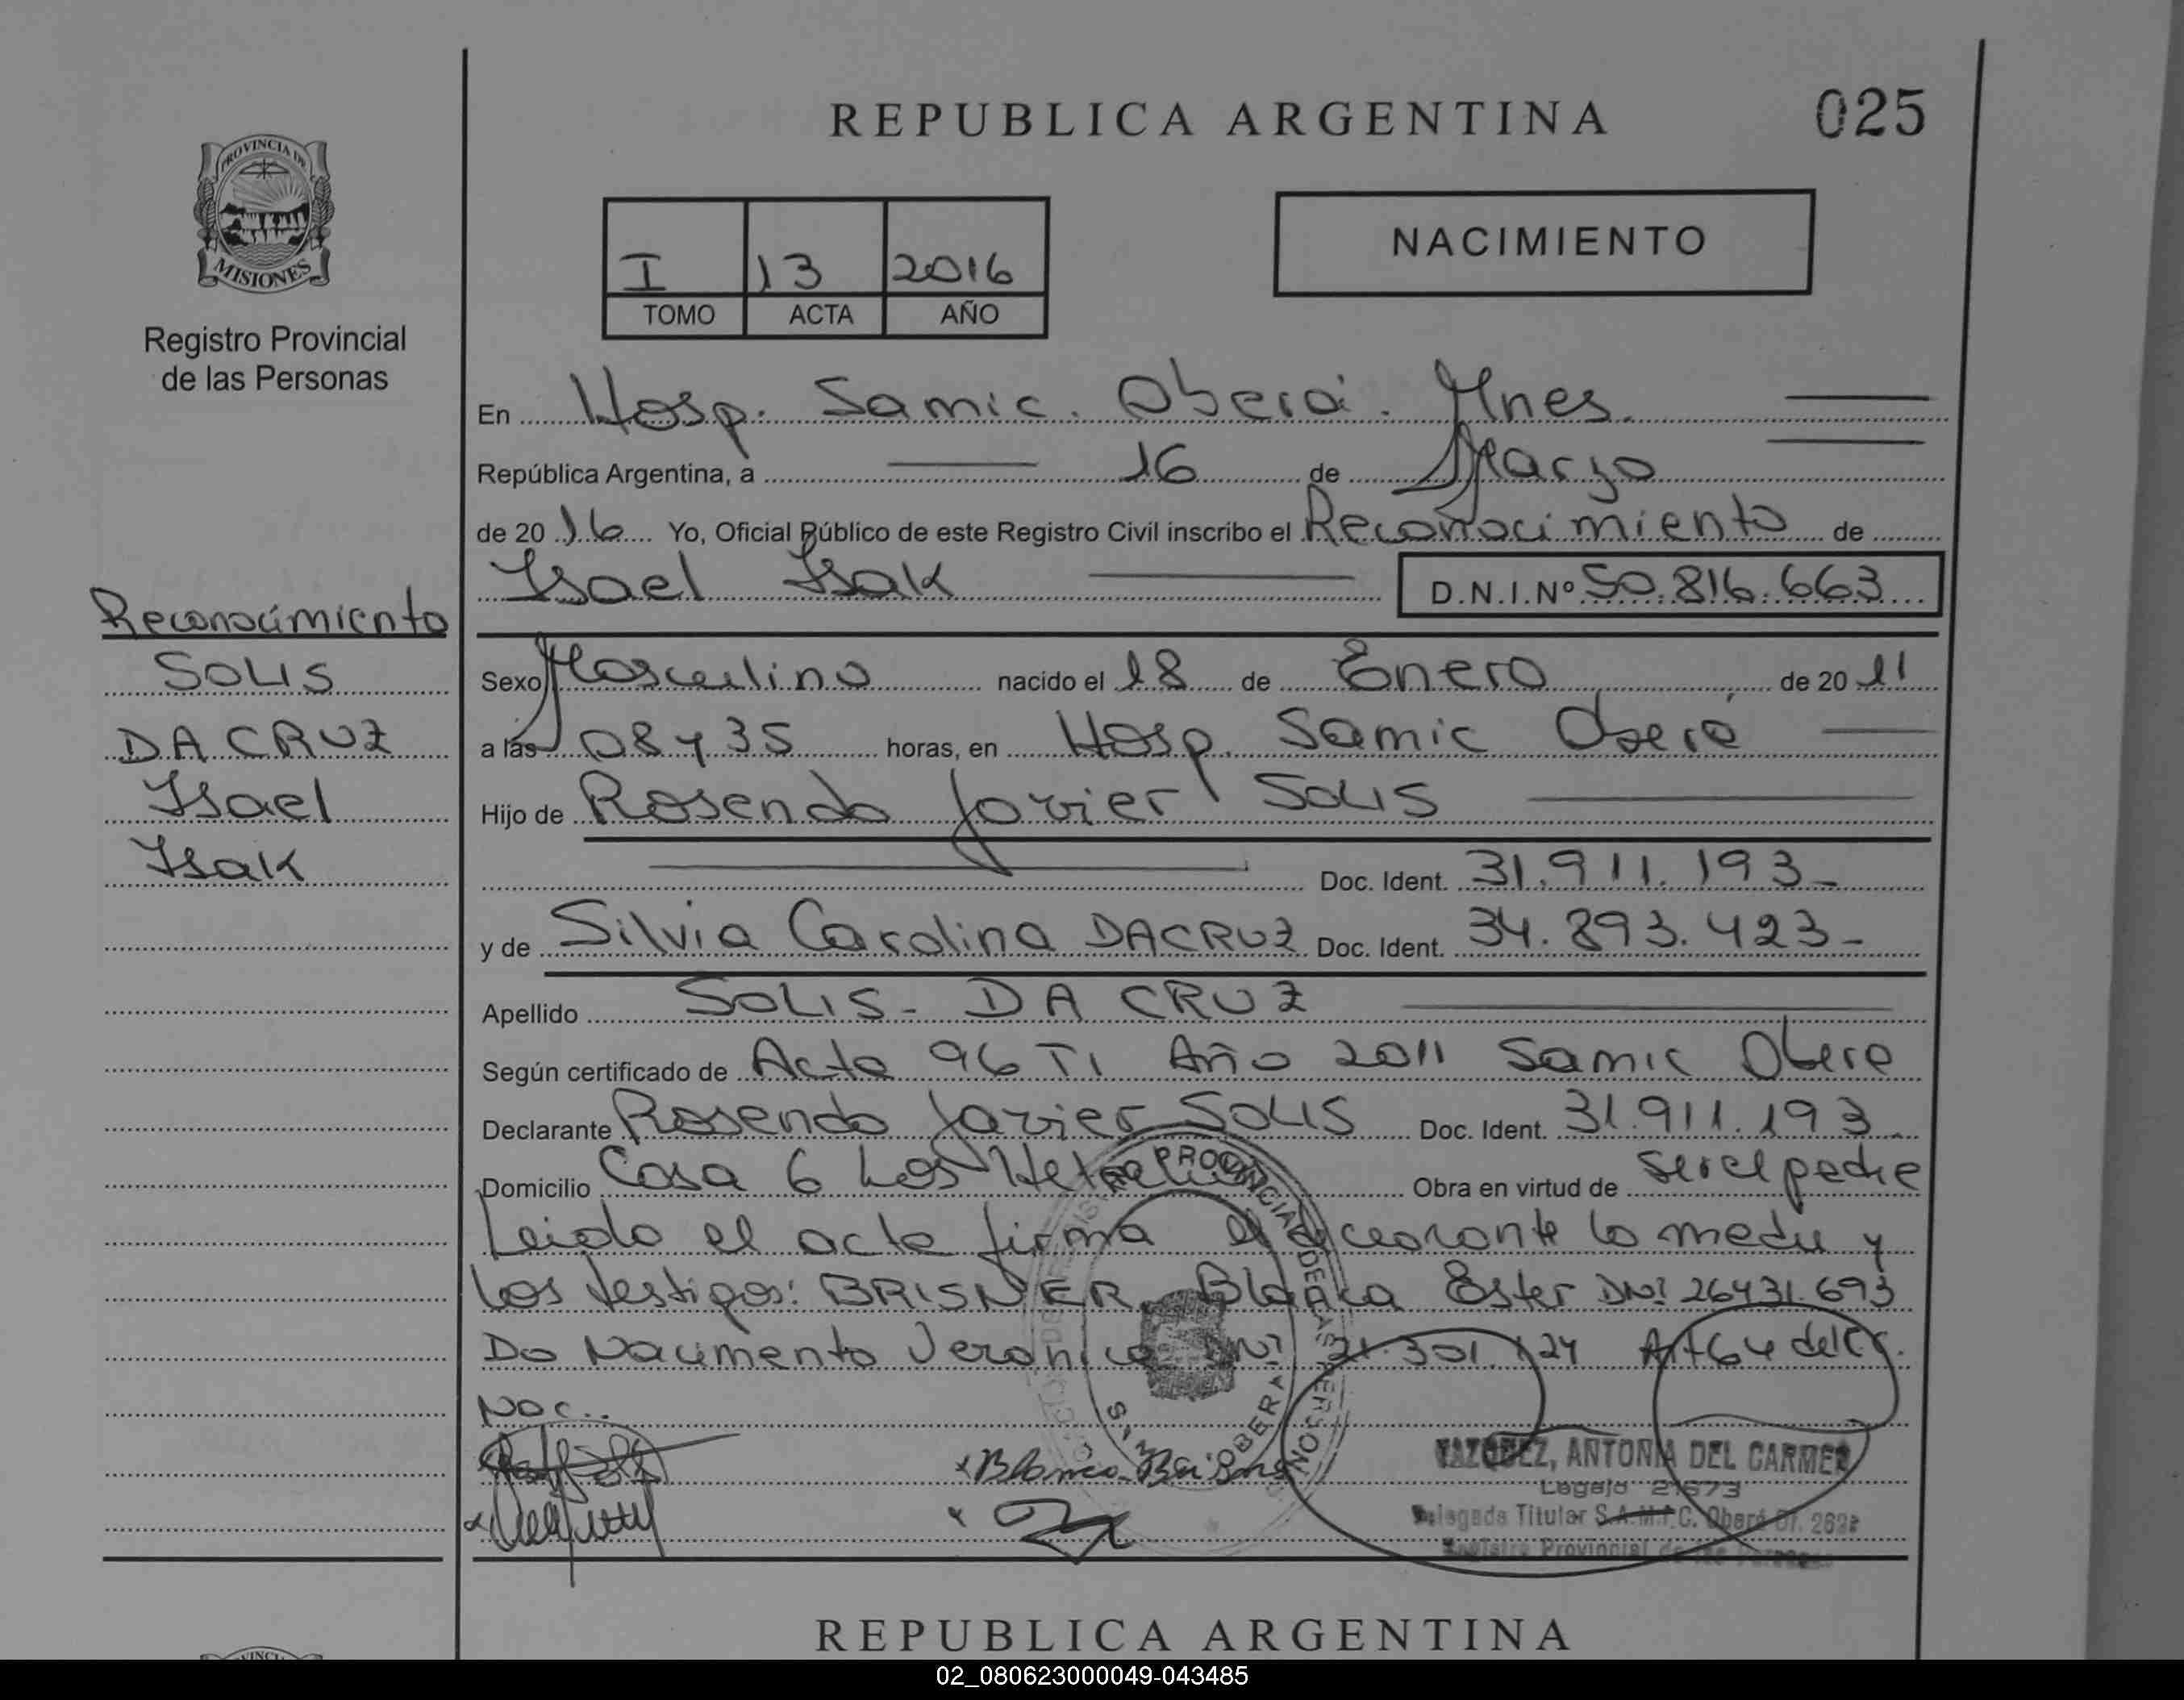 REPUBLICA ARGENTINA
025
PROVINCIA DE
MISIONES
Registro Provincial
de las Personas
I 13 2016
TOMO ACTA AÑO
NACIMIENTO
En Hosp. Samic. Oberá. Mnes.
República Argentina, a 16 de Marzo
de 2016 Yo, Oficial Público de este Registro Civil inscribo el Reconocimiento de
Isael Isak D.N.I.Nº 50.816.663
Reconocimiento
SOLIS
DA CRUZ
Isael
Isak
Sexo Masculino nacido el 18 de Enero de 2011
a las 08 y 35 horas, en Hosp. Samic Oberá
Hijo de Rosendo Javier SOLIS
Doc. Ident. 31.911.193-
y de Silvia Carolina DACRUZ Doc. Ident. 34.893.423-
Apellido SOLIS - DA CRUZ
Según certificado de Acta 96 T1 Año 2011 Samic Obera
Declarante Rosendo Javier SOLIS Doc. Ident. 31.911.193
Domicilio Casa 6 Los Obra en virtud de ser el padre
Leido el acta firma el la madre y
los testigos: BRISNER Blanca Ester DNI 26431.693
Do Nacimento Veronica DNI 301.124 Art 64 del C.
Noc..
VAZQUEZ, ANTONIA DEL CARMEN
Legajo 21673
Delegada Titular S.A.M.I.C. Oberá Of. 2622
Registro Provincial de las Personas
REPUBLICA ARGENTINA
02_080623000049-043485